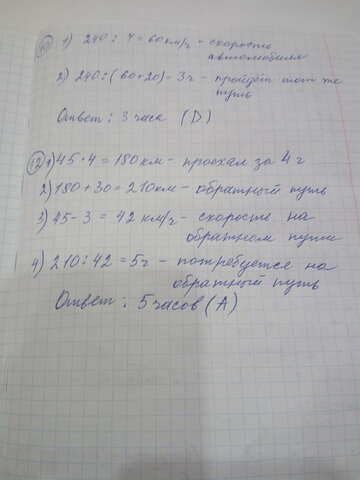 1) 240 : 4 = 60 км/ч - скорость
автомобиля
2) 240 : (60+20) = 3ч - пройдёт тот же
путь
Ответ: 3 часа (D)
12 1) 45·4 = 180 км - проехал за 4 г
2) 180 + 30 = 210 км - обратный путь
3) 45 - 3 = 42 км/г - скорость на
обратном пути
4) 210 : 42 = 5 ч - потребуется на
обратный путь
Ответ: 5 часов (А)